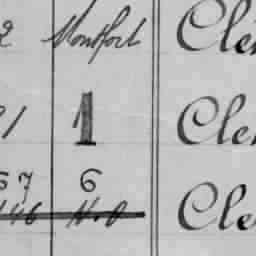 2 Montfort Cle
21 1 Cle
67 6
146 N.O Cle